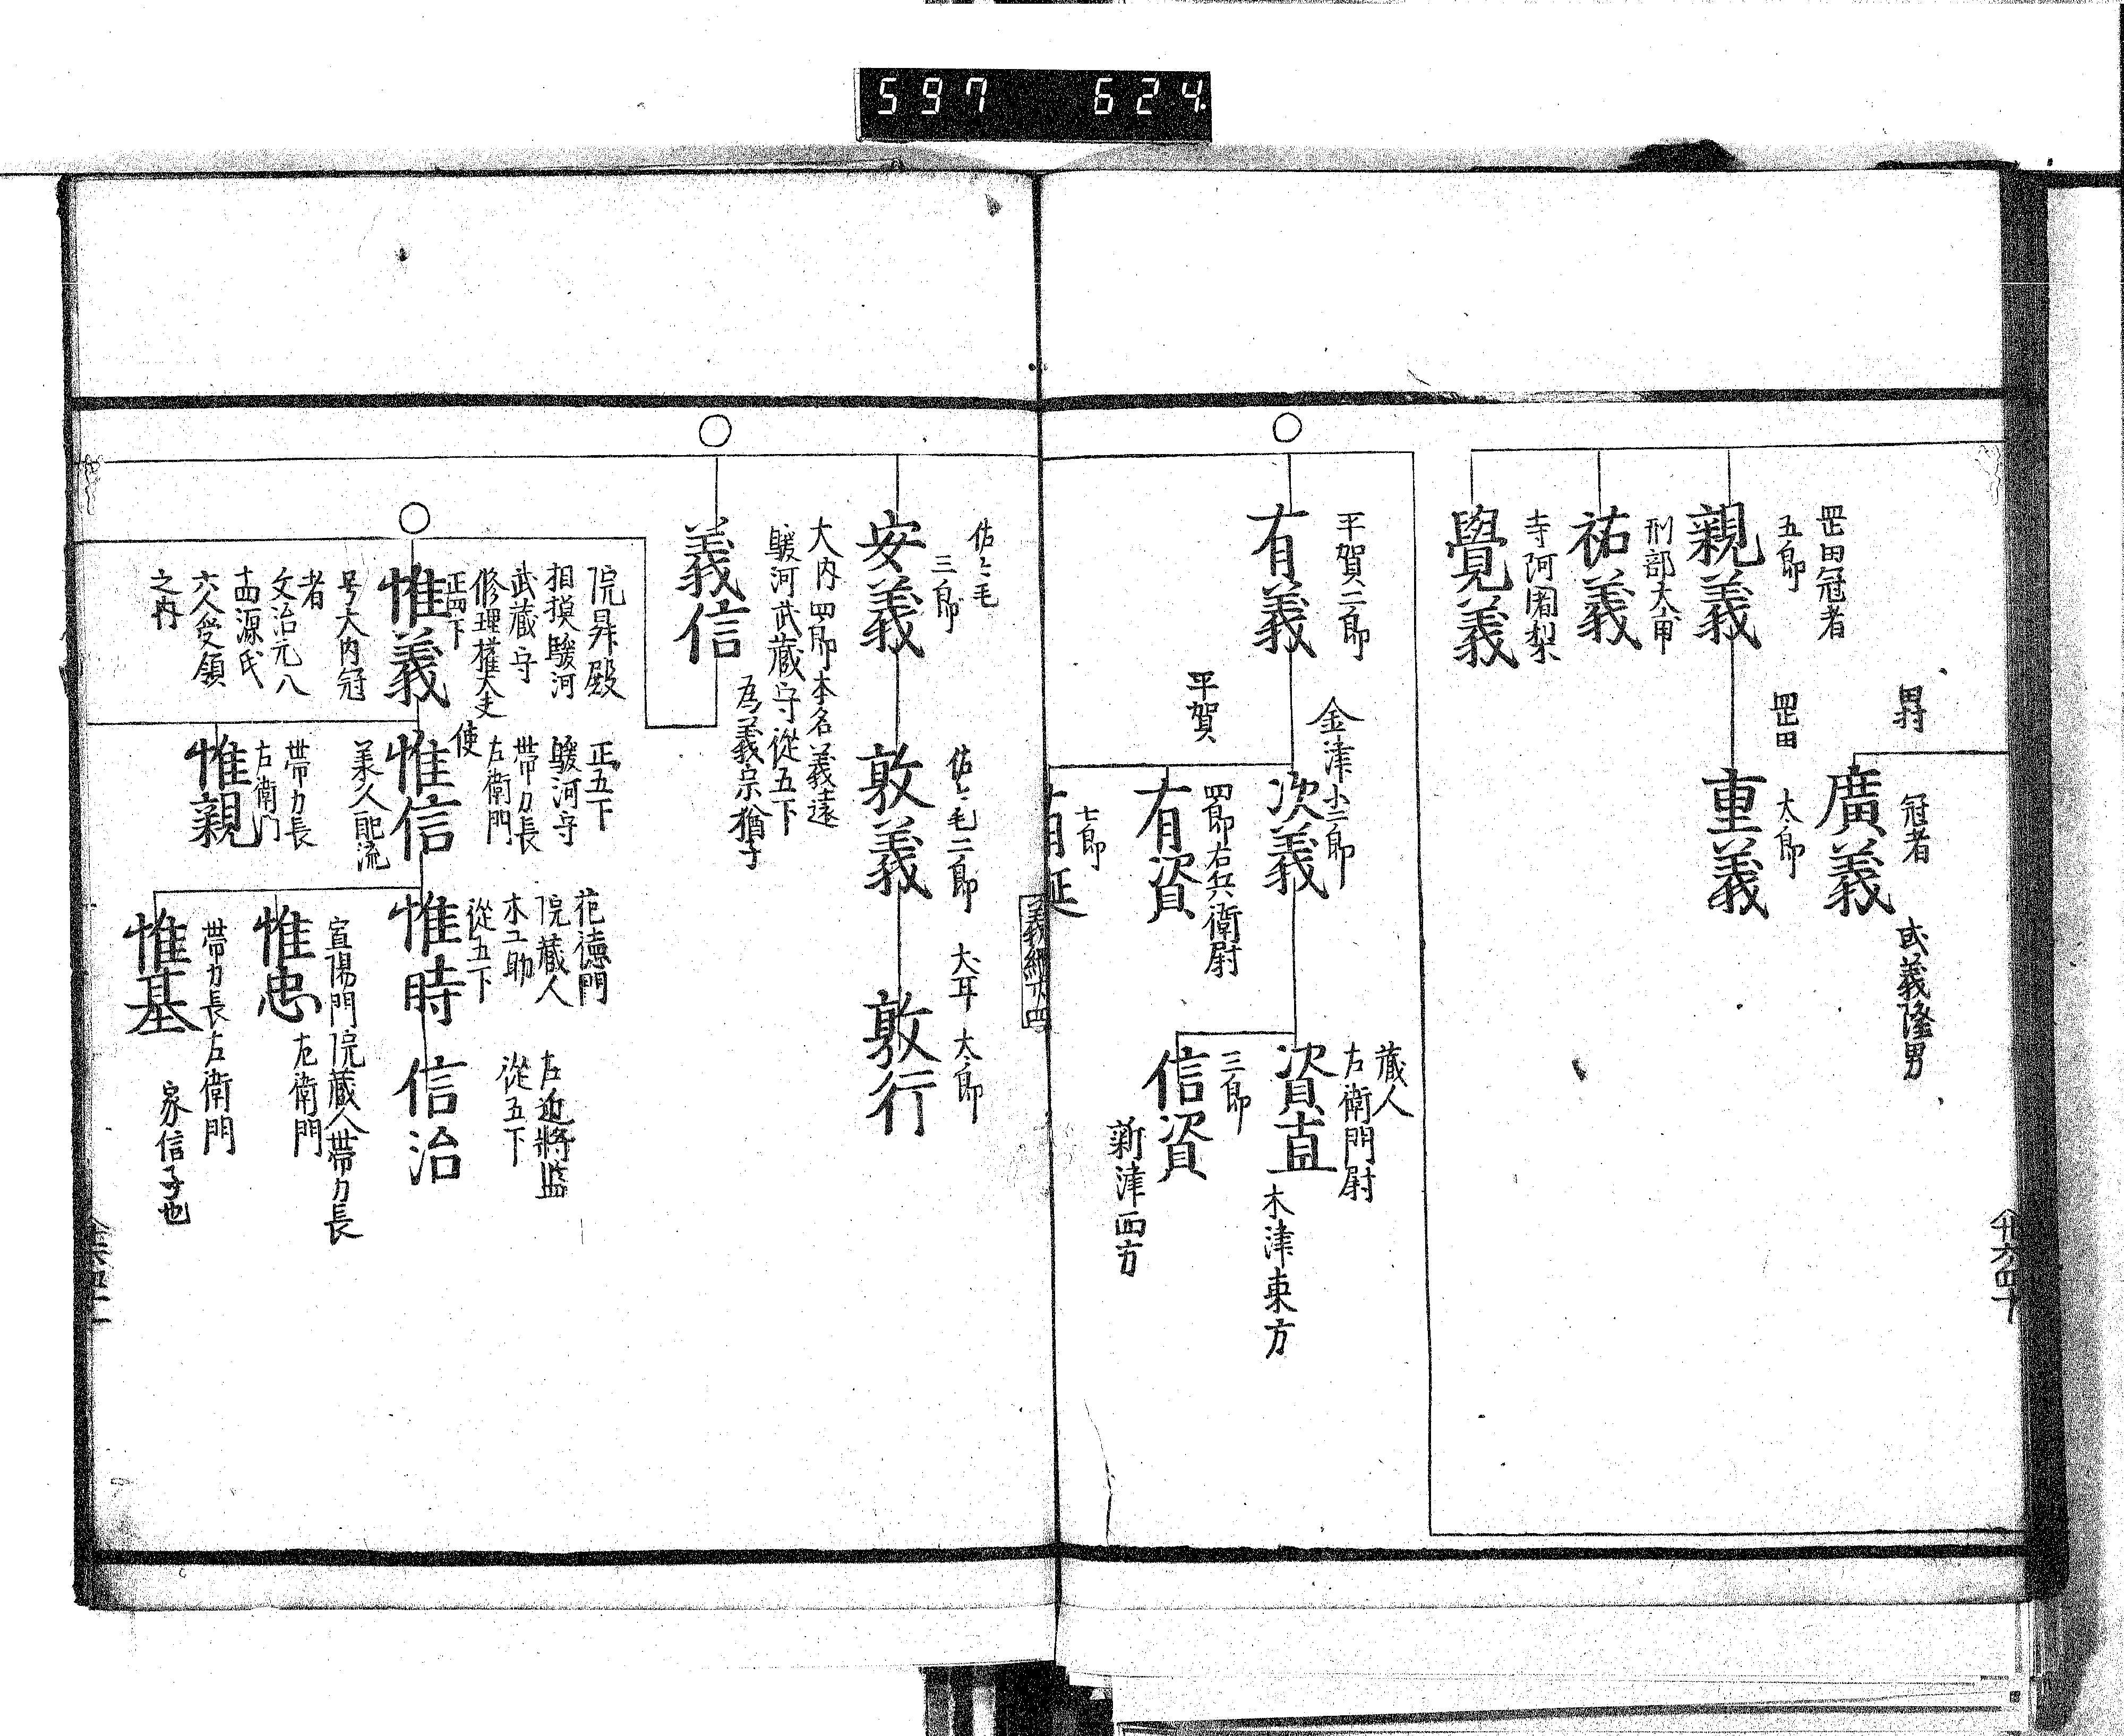 597 624
罡田冠者
五郎
親義
刑部大甫
祐義
寺阿闍梨
覺義
冠者
廣義
或義隆男
罡田
太郎
重義
平賀二郎
有義
金津小二郎
次義
平賀
四郎右兵衛尉
有資
七郎
有延
蔵人
左衛門尉
資直
木津東方
三郎
信資
新津西方
佐々毛
三郎
安義
佐々毛二郎
敦義
太耳 太郎
敦行
大内四郎本名義遠
駿河武蔵守従五下
為義宗猶子
義信
院昇殿
相摸駿河
武蔵守
修理権大夫
正四下
惟義
号大内冠
者
文治元八
十四源氏
六人受領
之内
正五下
駿河守
帯刀長
左衛門
使
惟信
美久配流
帯刀長
左衛门
惟親
花徳門
院蔵人
木工助
従五下
惟時
左近將監
従五下
信治
宣陽門院蔵人帯刀長
左衛門
惟忠
帯刀長左衛門
惟基
家信子也